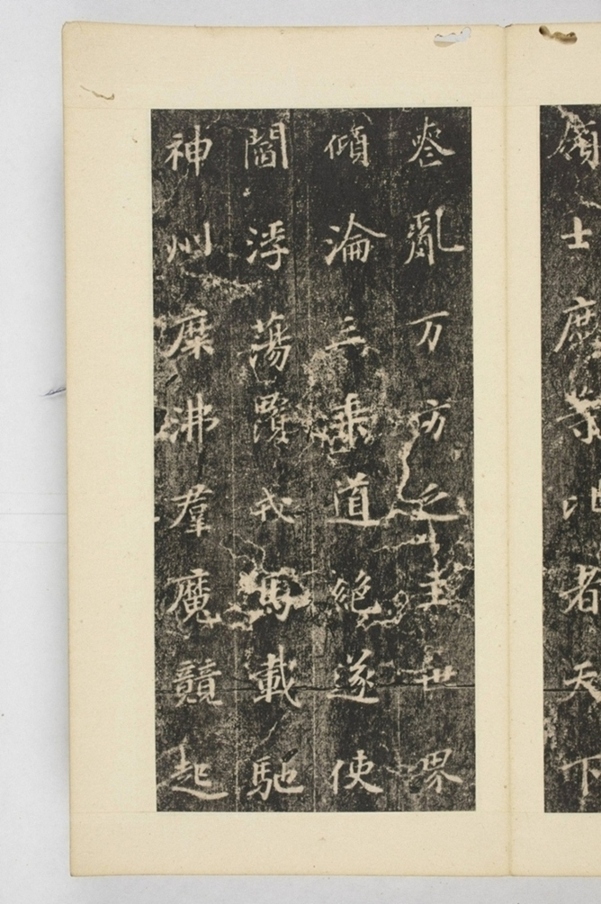 領士庶等比者天下
喪亂万方乏主世界
傾淪三乘道絕遂使
閻浮蕩覆戎馬載馳
神州糜沸羣魔競起